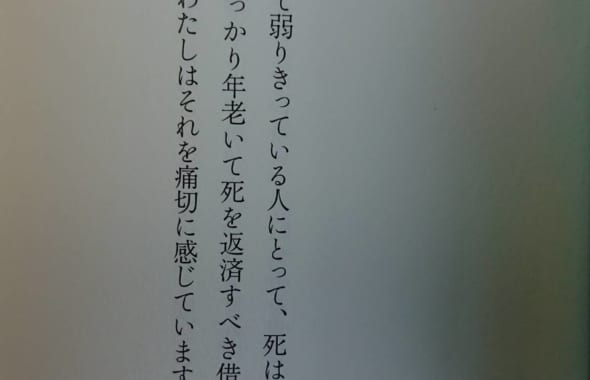 て弱りきっている人にとって、死は
っかり年老いて死を返済すべき借
わたしはそれを痛切に感じています